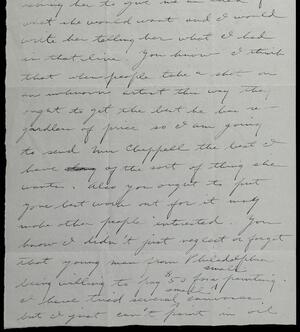 asking her to give me an idea of
what she would want and I would
write her telling her what I had
in that line. You know I think
that when people take a shot on
an unknown artist this way they
ought to get the best he has re-
gardless of price so I am going
to send Mrs Chappell the best I
have of the sort of thing she
wants. Also you ought to put
your best work out for it may
make other people interested. You
know I didn't just neglect or forget
that young man from Philadelphia
small
being willing to pay $50 for a painting
small
I have tried several canvases,
but I just can't paint in oil